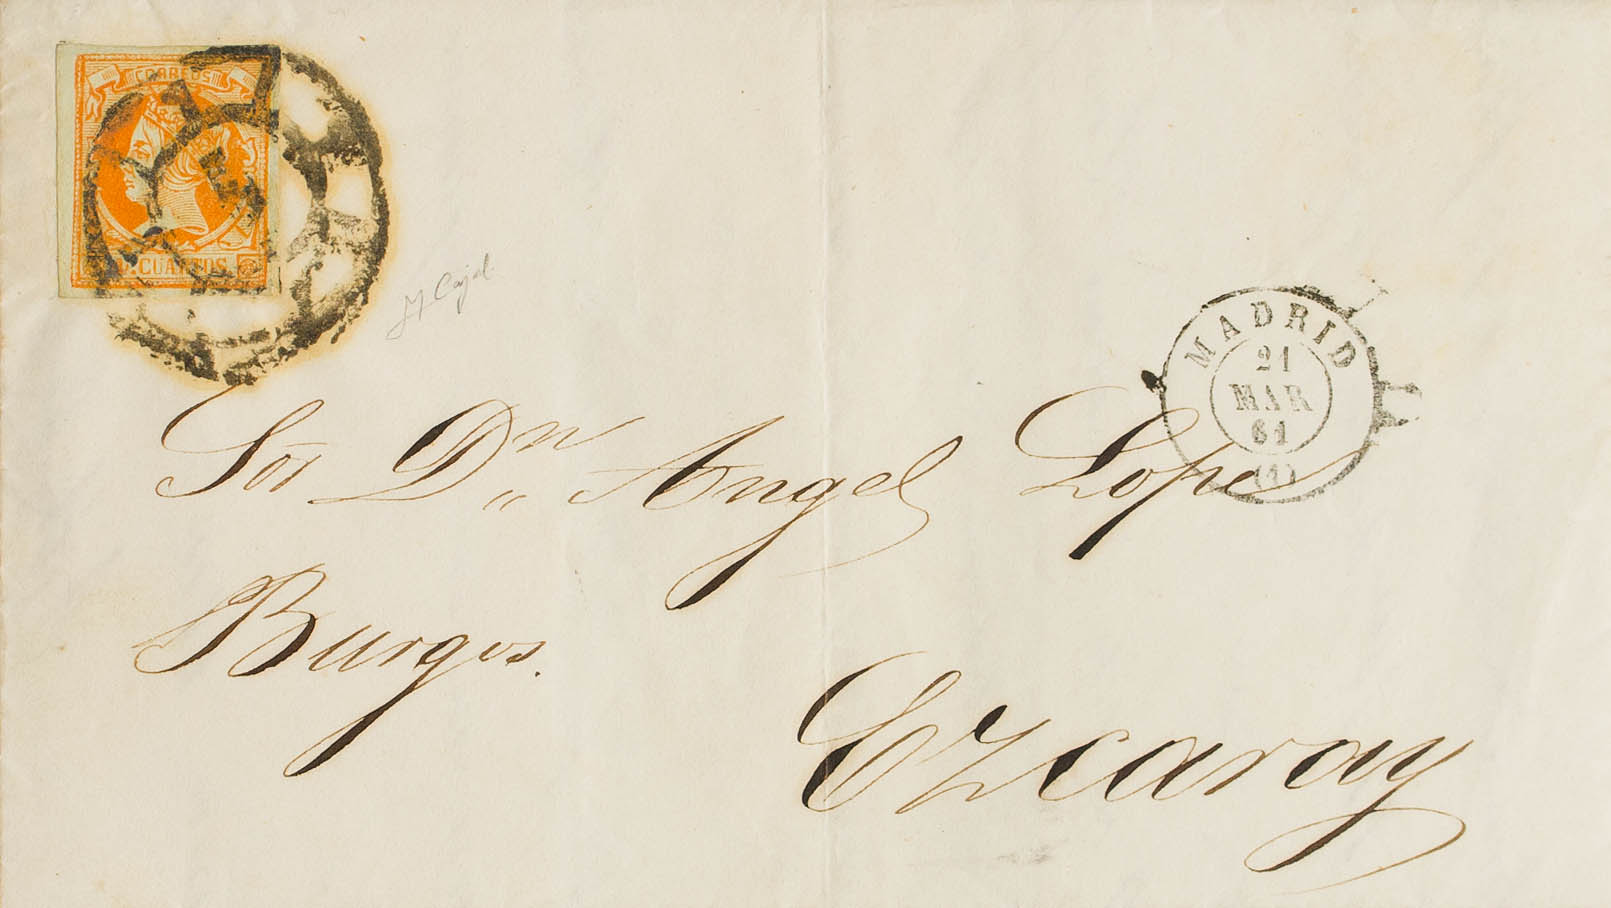 CORREOS
CUARTOS
J Cajal
MADRID
21
MAR
61
(1)
Sor Dn Angel Lope
Burgos.
Ezcaray